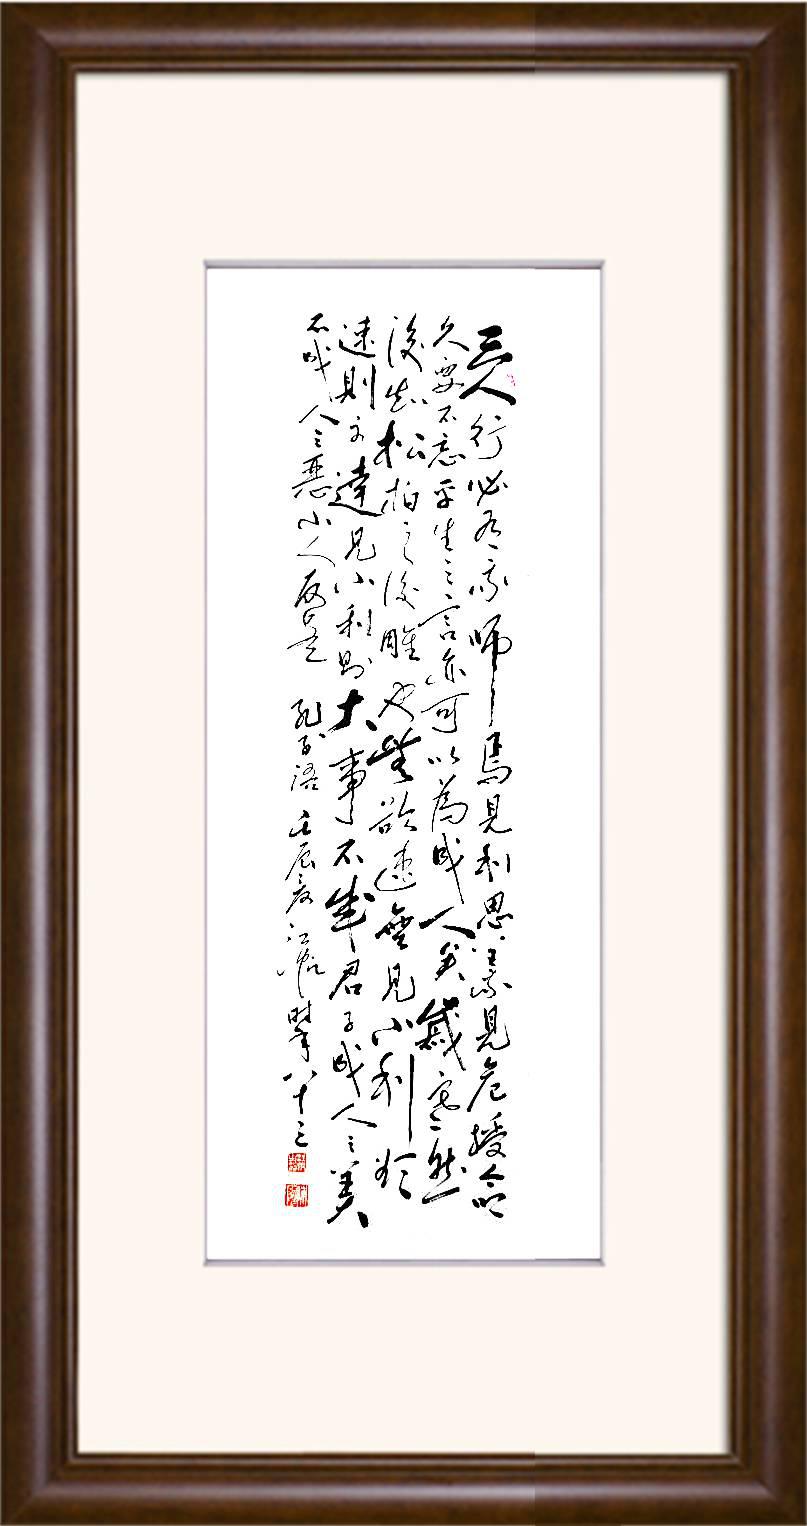 三人行必有我師焉見利思義見危授命
久要不忘平生之言亦可以為成人矣歲寒然
後知松柏之後雕也無欲速無見小利欲
速則不達見小利則大事不成君子成人之美
不成人之惡小人反是 孔子語 壬辰夏 江 時年八十三